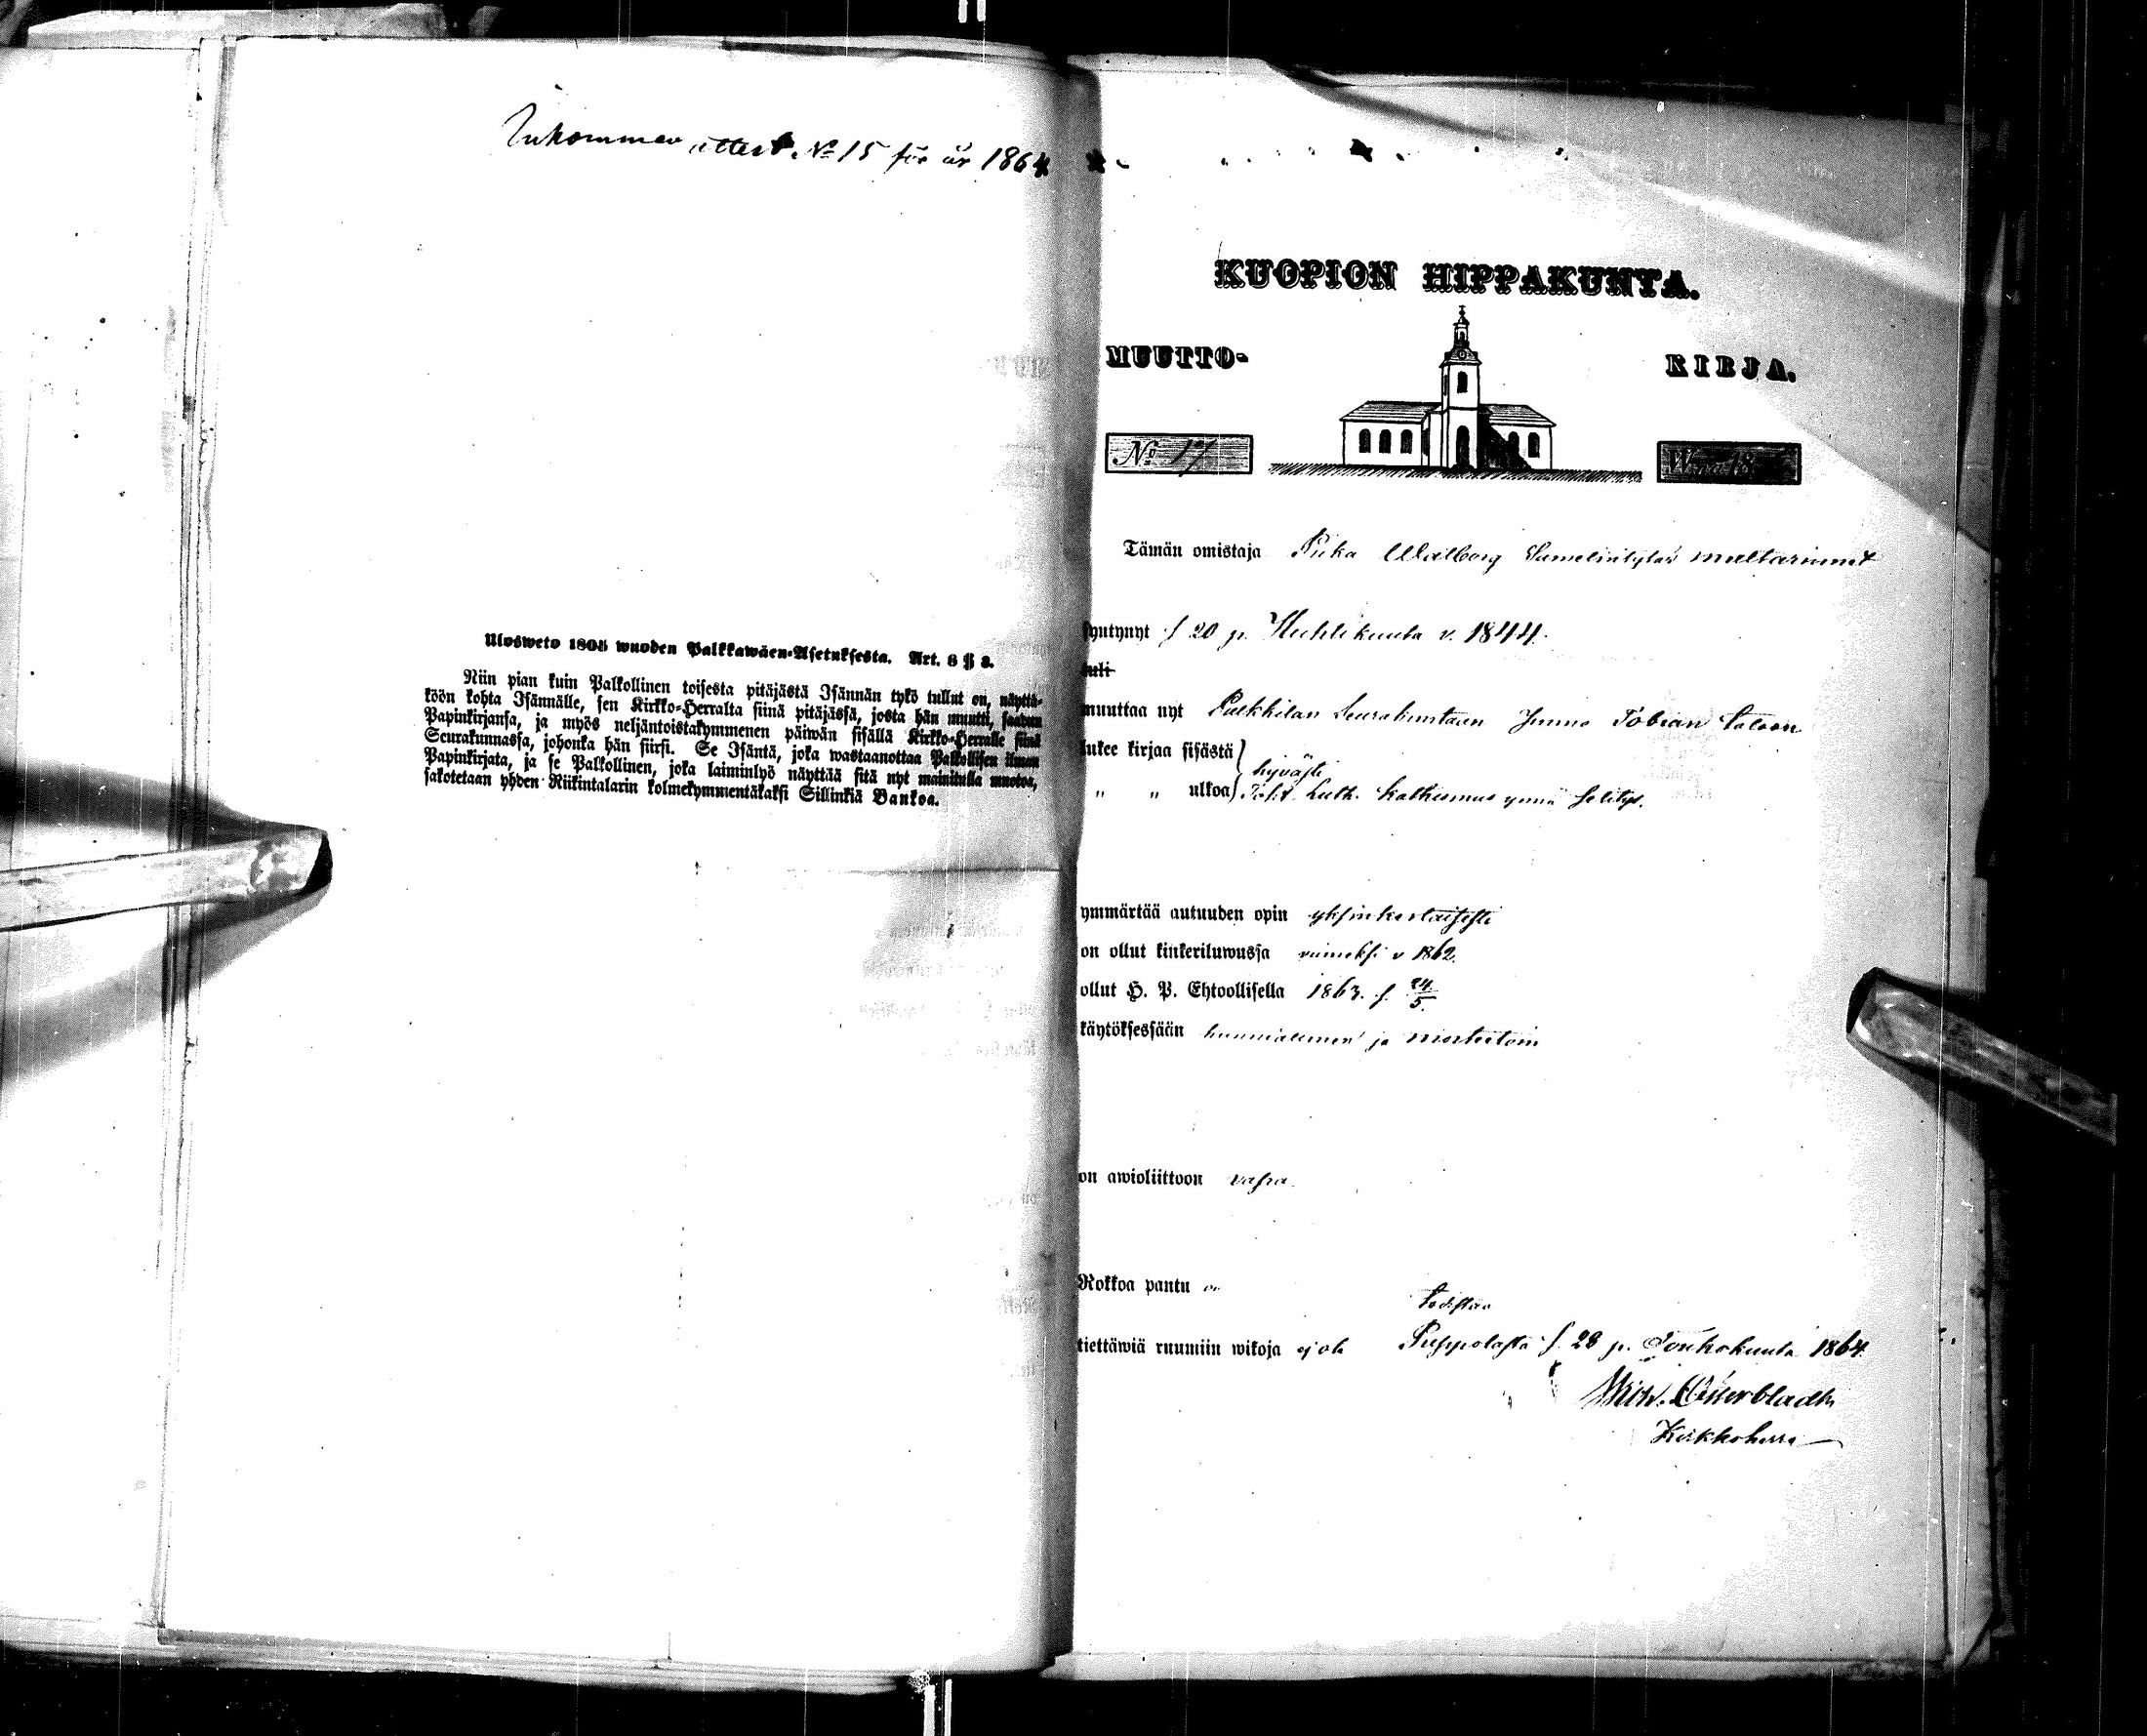 Inkommen attest. No 15 för år 1864
Ulosweto 1805 wuoden Palkkawäen-Asetuksesta. Art. 8 § 3.
Niin pian kuin Palkollinen toisesta pitäjästä Isännän tykö tullut on, näyttä-
köön kohta Isännälle, sen Kirkko-Herralta siinä pitäjässä, josta hän muutti, saadun
Papinkirjansa, ja myös neljäntoistakymmenen päiwän sisällä Kirkko-Herralle siinä
Seurakunnassa, johonka hän siirsi. Se Isäntä, joka wastaanottaa Palkollisen ilman
Papinkirjata, ja se Palkollinen, joka laiminlyö näyttää sitä nyt mainitulla muotoa,
sakotetaan yhden Riikintalarin kolmekymmentäkaksi Sillinkiä Bankoa.
KUOPION HIPPAKUNTA.
MUUTTO- KIRJA.
No 17 Wuonna 18
Tämän omistaja Piika Walborg
syntynyt s 20 p. Huhtikuuta v. 1844.
tuli
muuttaa nyt Pulkkilan Seurakuntaan Tobian taloon
lukee kirjaa sisästä hyvästi
„ „ ulkoa Luth. Katkismus ynnä selitys.
ymmärtää autuuden opin yksinkertaisesti
on ollut kinkeriluwussa viimeksi v 1862.
ollut H. P. Ehtoollisella 1863. s. 24/5.
käytöksessään kunniallinen ja moitteetoin
on awioliittoon vapa
Rokkoa pantu on
todistaa
tiettäwiä ruumiin wikoja ej ole Piippolasta s. 28 p. Toukokuuta 1864.
Österbladh
Kirkkoherra